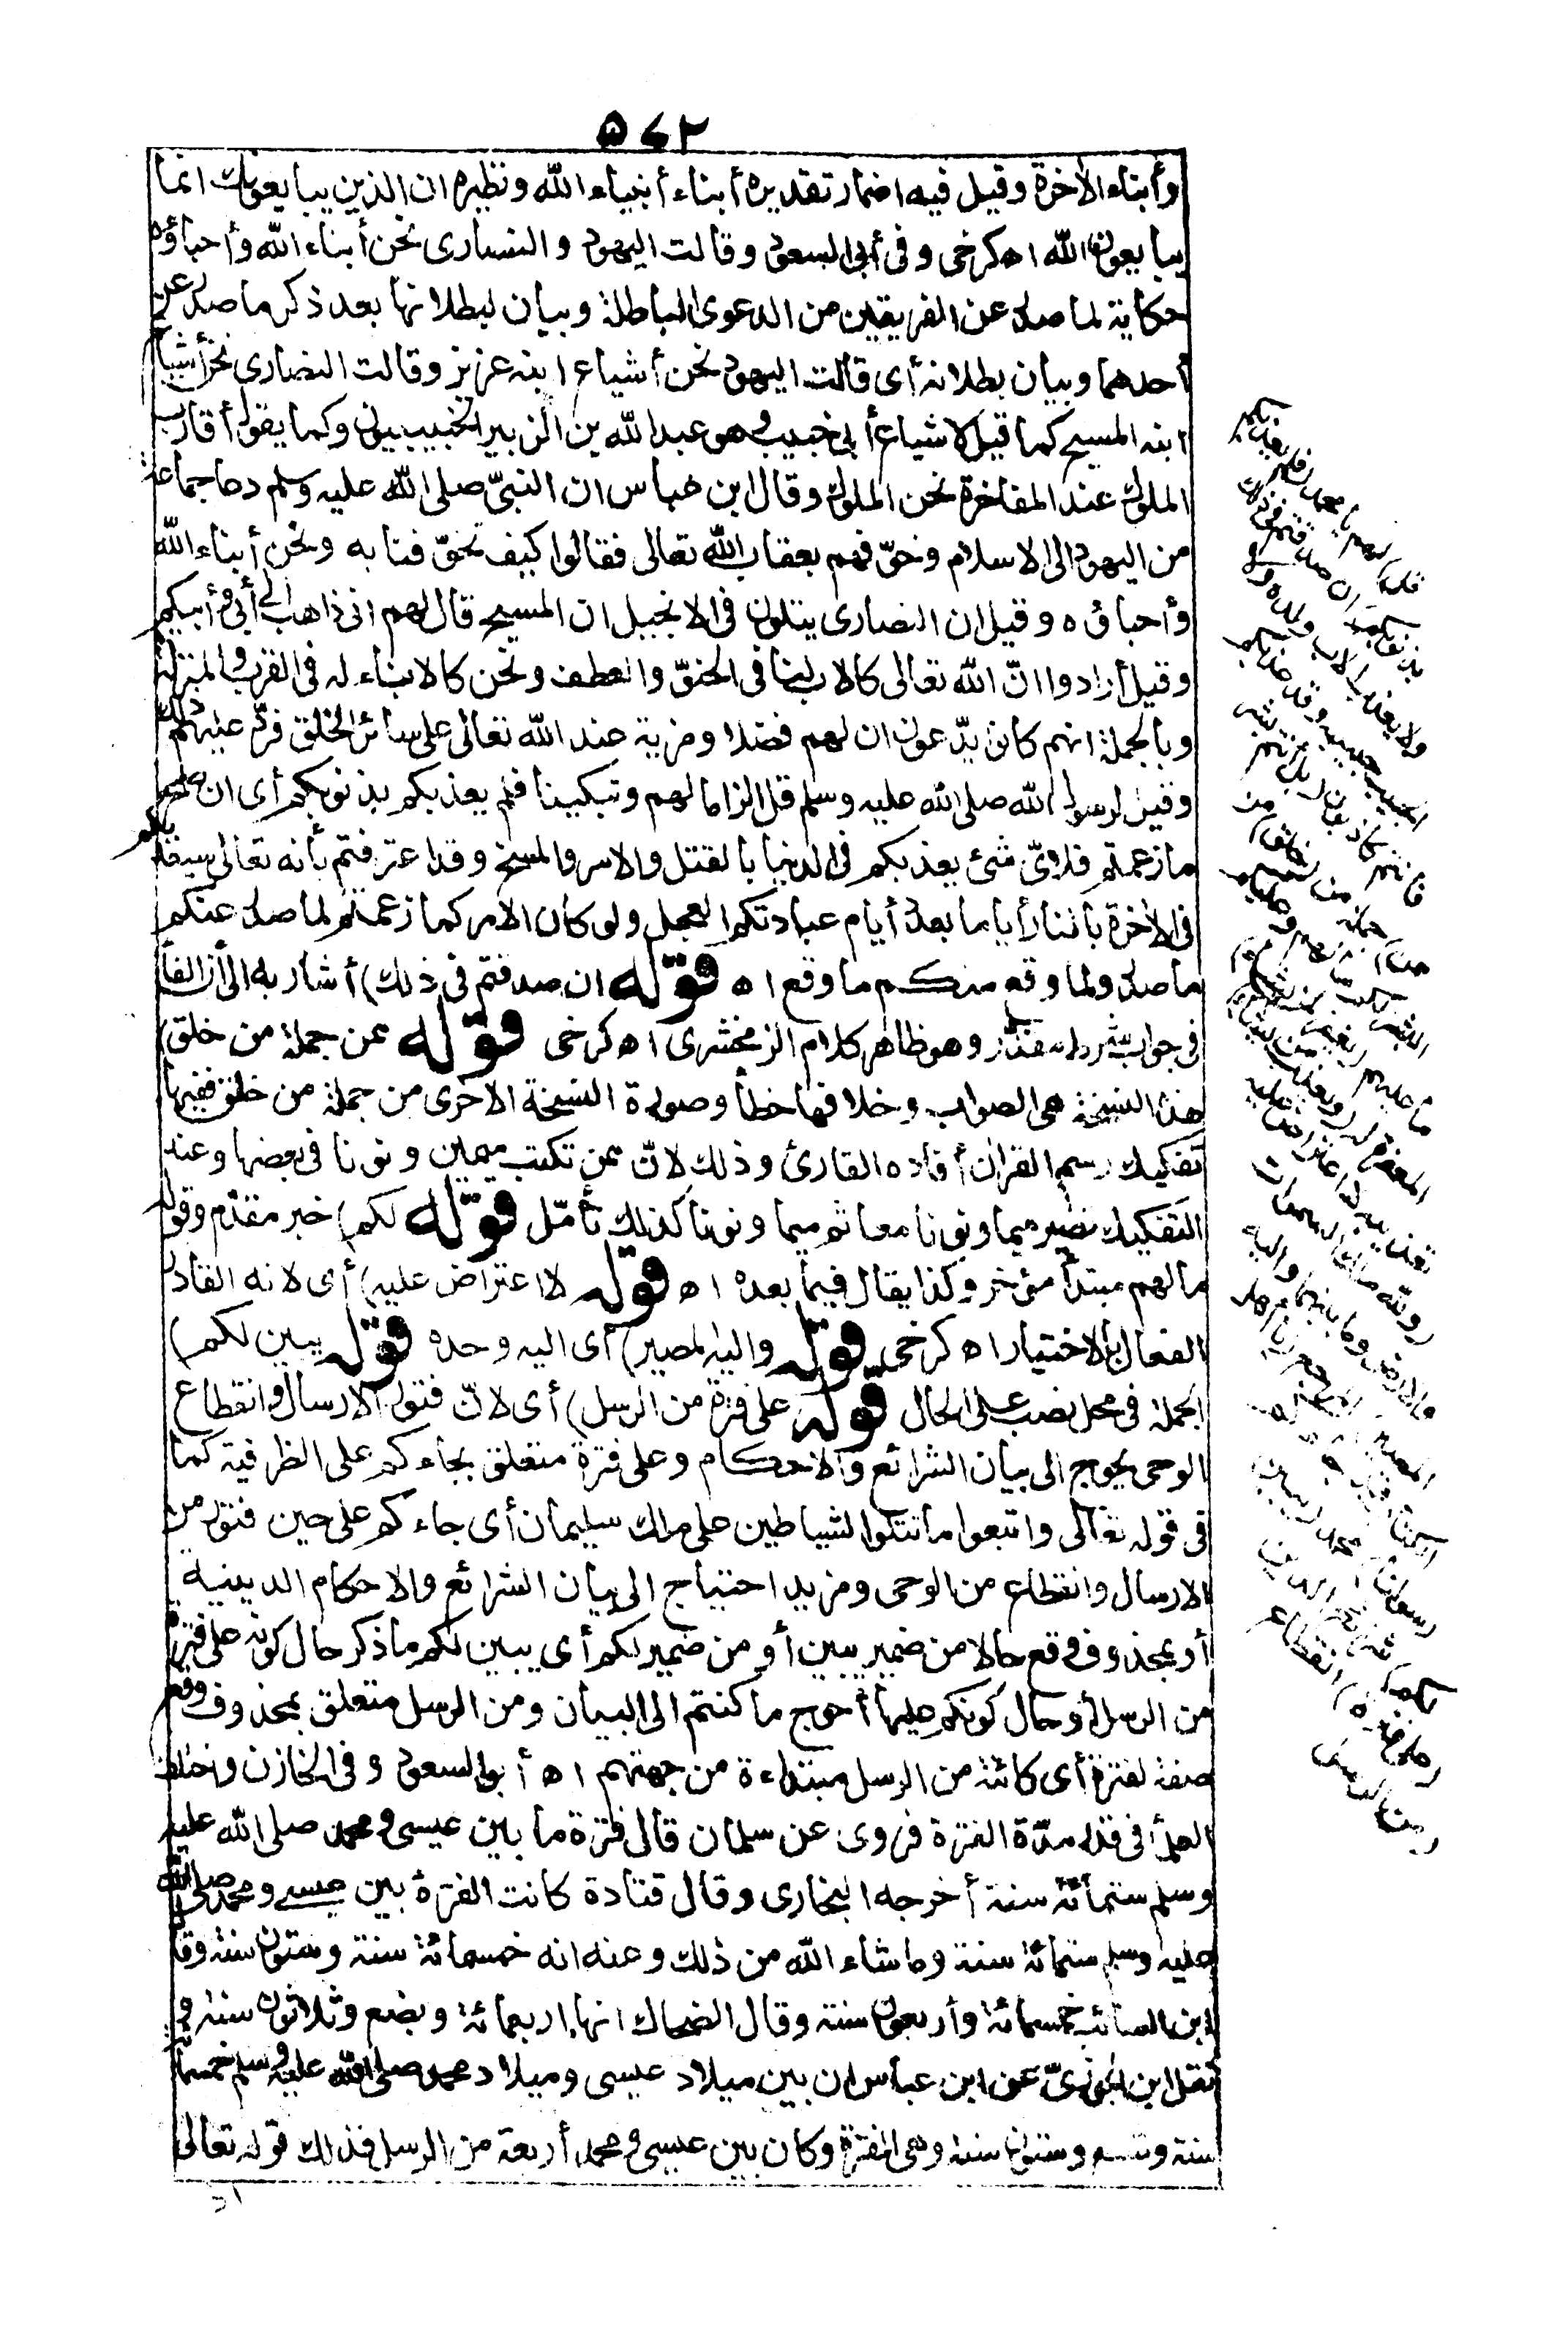 ٥٧٢
وأبناء الاٰخرة وقيل فيه اضمار تقديره أبناء أنبياء الله ونظيره ان الذين يبايعونك انما
يبايعون الله اه كرخى وفى أبى السعود وقالت اليهود والنصارى نحن أبناء الله وأحباؤه
حكاية لما صدر عن الفريقين من الدعوى الباطلة وبيان لبطلانها بعد ذكر ما صدر عن
أحدهما وبيان بطلانه أى قالت اليهود نحن أشياع ابنه عزيز وقالت النصارى نحن أشياع
ابنه المسيح كما قيل لاشياع أبى خبيب وهو عبد الله بن الزبير الخبيبيون وكما يقول أقارب
الملوك عند المفاخرة نحن الملوك وقال ابن عباس ان النبىّ صلى الله عليه وسلم دعا جماعة
من اليهود الى الاسلام وخوّفهم بعقاب الله تعالى فقالوا كيف تخوّفنا به ونحن أبناء الله
وأحباؤه وقيل ان النصارى يتلون فى الانجيل ان المسيح قال لهم انى ذاهب الى أبى وأبيكم
وقيل أرادوا انّ الله تعالى كالاب لنا فى الحنوّ والعطف ونحن كالابناء له فى القرب والمنزلة
وبالجملة انهم كانوا يدّعون ان لهم فضلا ومزية عند الله تعالى على سائر الخلق فردّ عليهم ذلك
وقيل لرسول الله صلى الله عليه وسلم قل الزاما لهم وتبكيتا فلم يعذبكم بذنوبكم أى ان صح
ما زعمتم فلاىّ شئ يعذبكم فى الدنيا بالقتل والاسر والمسخ وقد اعترفتم بأنه تعالى سيعذبكم
فى الاٰخرة بالنار أياما بعدد أيام عبادتكم العجل ولو كان الامر كما زعمتم لما صدر عنكم
ما صدر ولما وقع منكم ما وقع اه قوله ان صدقتم فى ذلك) أشار به الى أن الفاء
فى جواب شرط مقدّر وهو ظاهر كلام الزمخشرى اه كرخى قوله ممن جملة من خلق)
هذه النسخة هى الصواب وخلافها خطأ وصورة النسخة الاخرى من جملة من خلق ففيها
تفكيك رسم القراٰن أفاده القارئ وذلك لانّ ممن تكتب ميمين ونونا فى بعضها وعند
التفكيك تصير ميما ونونا معا ثم ميما ونونا كذلك تأمّل قوله لكم) خبر مقدّم وقوله
ما لهم مبتدأ مؤخر وكذا يقال فيما بعده اه قوله لا اعتراض عليه) أى لانه القادر
الفعال بالاختيار اه كرخى قوله واليه المصير) أى اليه وحده قوله يبين لكم)
الجملة فى محل نصب على الحال قوله على فترة من الرسل) أى لانّ فتور الارسال وانقطاع
الوحى يحوج الى بيان الشرائع والاحكام وعلى فترة متعلق بجاءكم على الظرفية كما
فى قوله تعالى واتبعوا ما تتلوا الشياطين على ملك سليمان أى جاءكم على حين فتور من
الارسال وانقطاع من الوحى ومزيد احتياج الى بيان الشرائع والاحكام الدينية
أو بمحذوف وقع حالا من ضمير يبين أو من ضمير لكم أى يبين لكم ما ذكر حال كونه على فترة
من الرسل أو حال كونكم عليها أحوج ما كنتم الى البيان ومن الرسل متعلق بمحذوف وقع
صفة لفترة أى كائنة من الرسل مبتداءة من جهتهم اه أبو السعود وفى الخازن واختلف
العلماء فى قدر مدّة الفترة فروى عن سلمان قال فترة ما بين عيسى ومحمد صلى الله عليه
وسلم ستمائة سنة أخرجه البخارى وقال قتادة كانت الفترة بين عيسى ومحمد صلى الله
عليه وسلم ستمائة سنة وما شاء الله من ذلك وعنه انه خمسمائة سنة وستون سنة وقال
ابن السائب خمسمائة وأربعون سنة وقال الضحاك انها اربعمائة وبضع وثلاثون سنة و
نقل ابن الجوزىّ عن ابن عباس ان بين ميلاد عيسى وميلاد محمد صلى الله عليه وسلم خمسمائة
سنة وتسع وستون سنة وهى الفترة وكان بين عيسى ومحمد أربعة من الرسل فذلك قوله تعالى
قل) لهم يا محمد (فلم يعذبكم
بذنوبكم) ان صدقتم فى ذلك
ولا يعذب الاب ولده ولا
الحبيب حبيبه وقد عذبكم
فانتم كاذبون (بل أنتم بشر